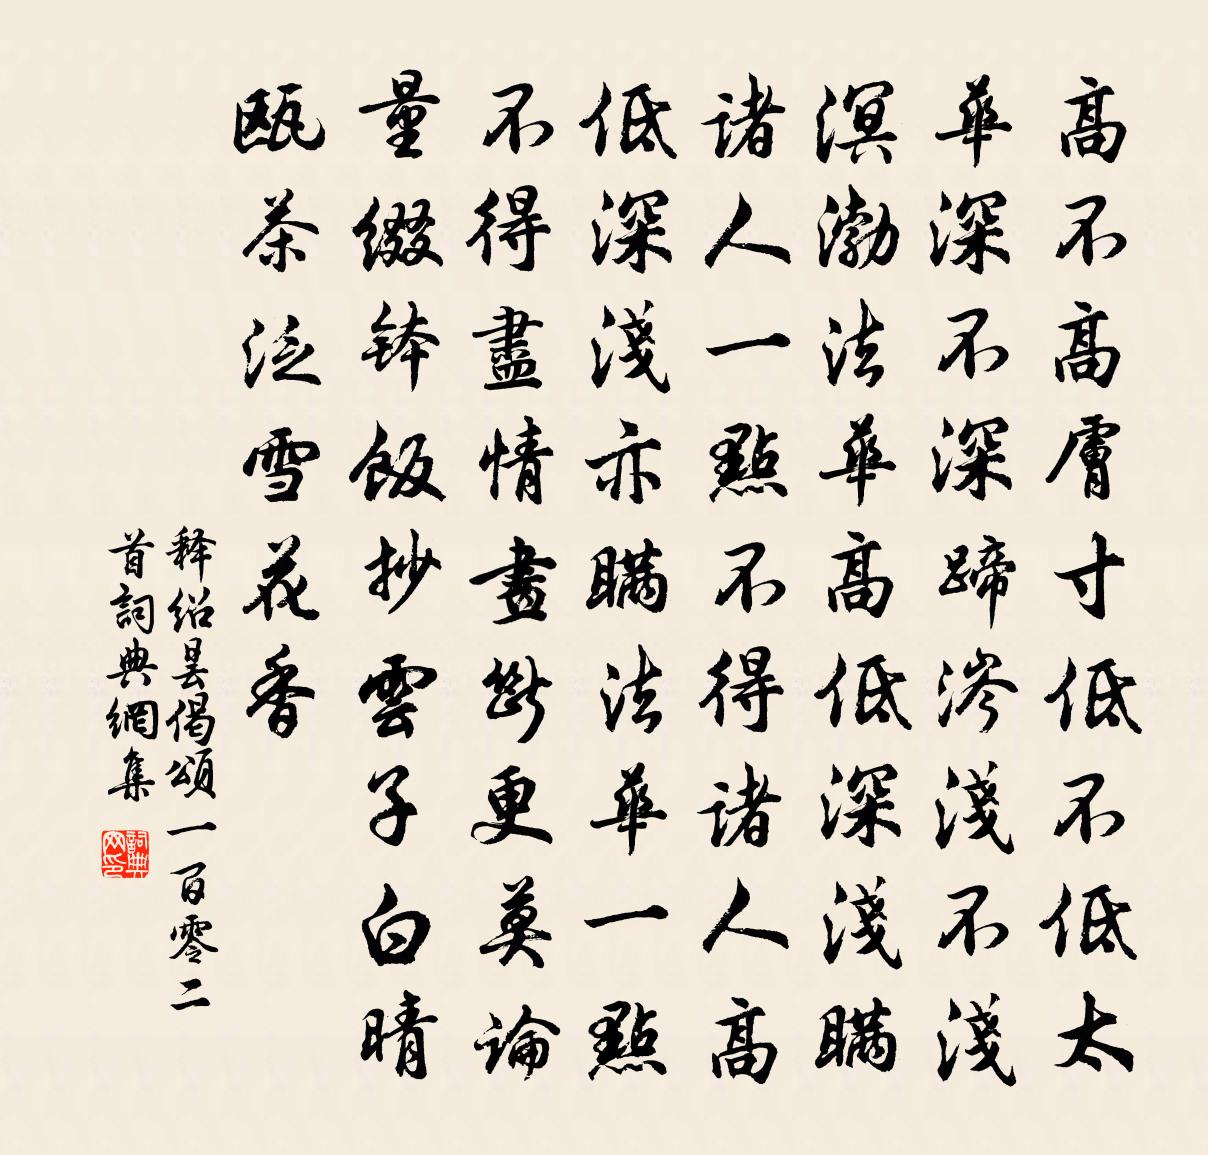 高不高膚寸低不低太
華深不深蹄涔淺不淺
溟渤法華高低深淺瞞
諸人一點不得諸人高
低深淺亦瞞法華一點
不得盡情畫斷更莫論
量綴鉢飯抄雲子白晴
甌茶泛雪花香
释绍昙偈頌一百零二
首詞典網集
詞典网印